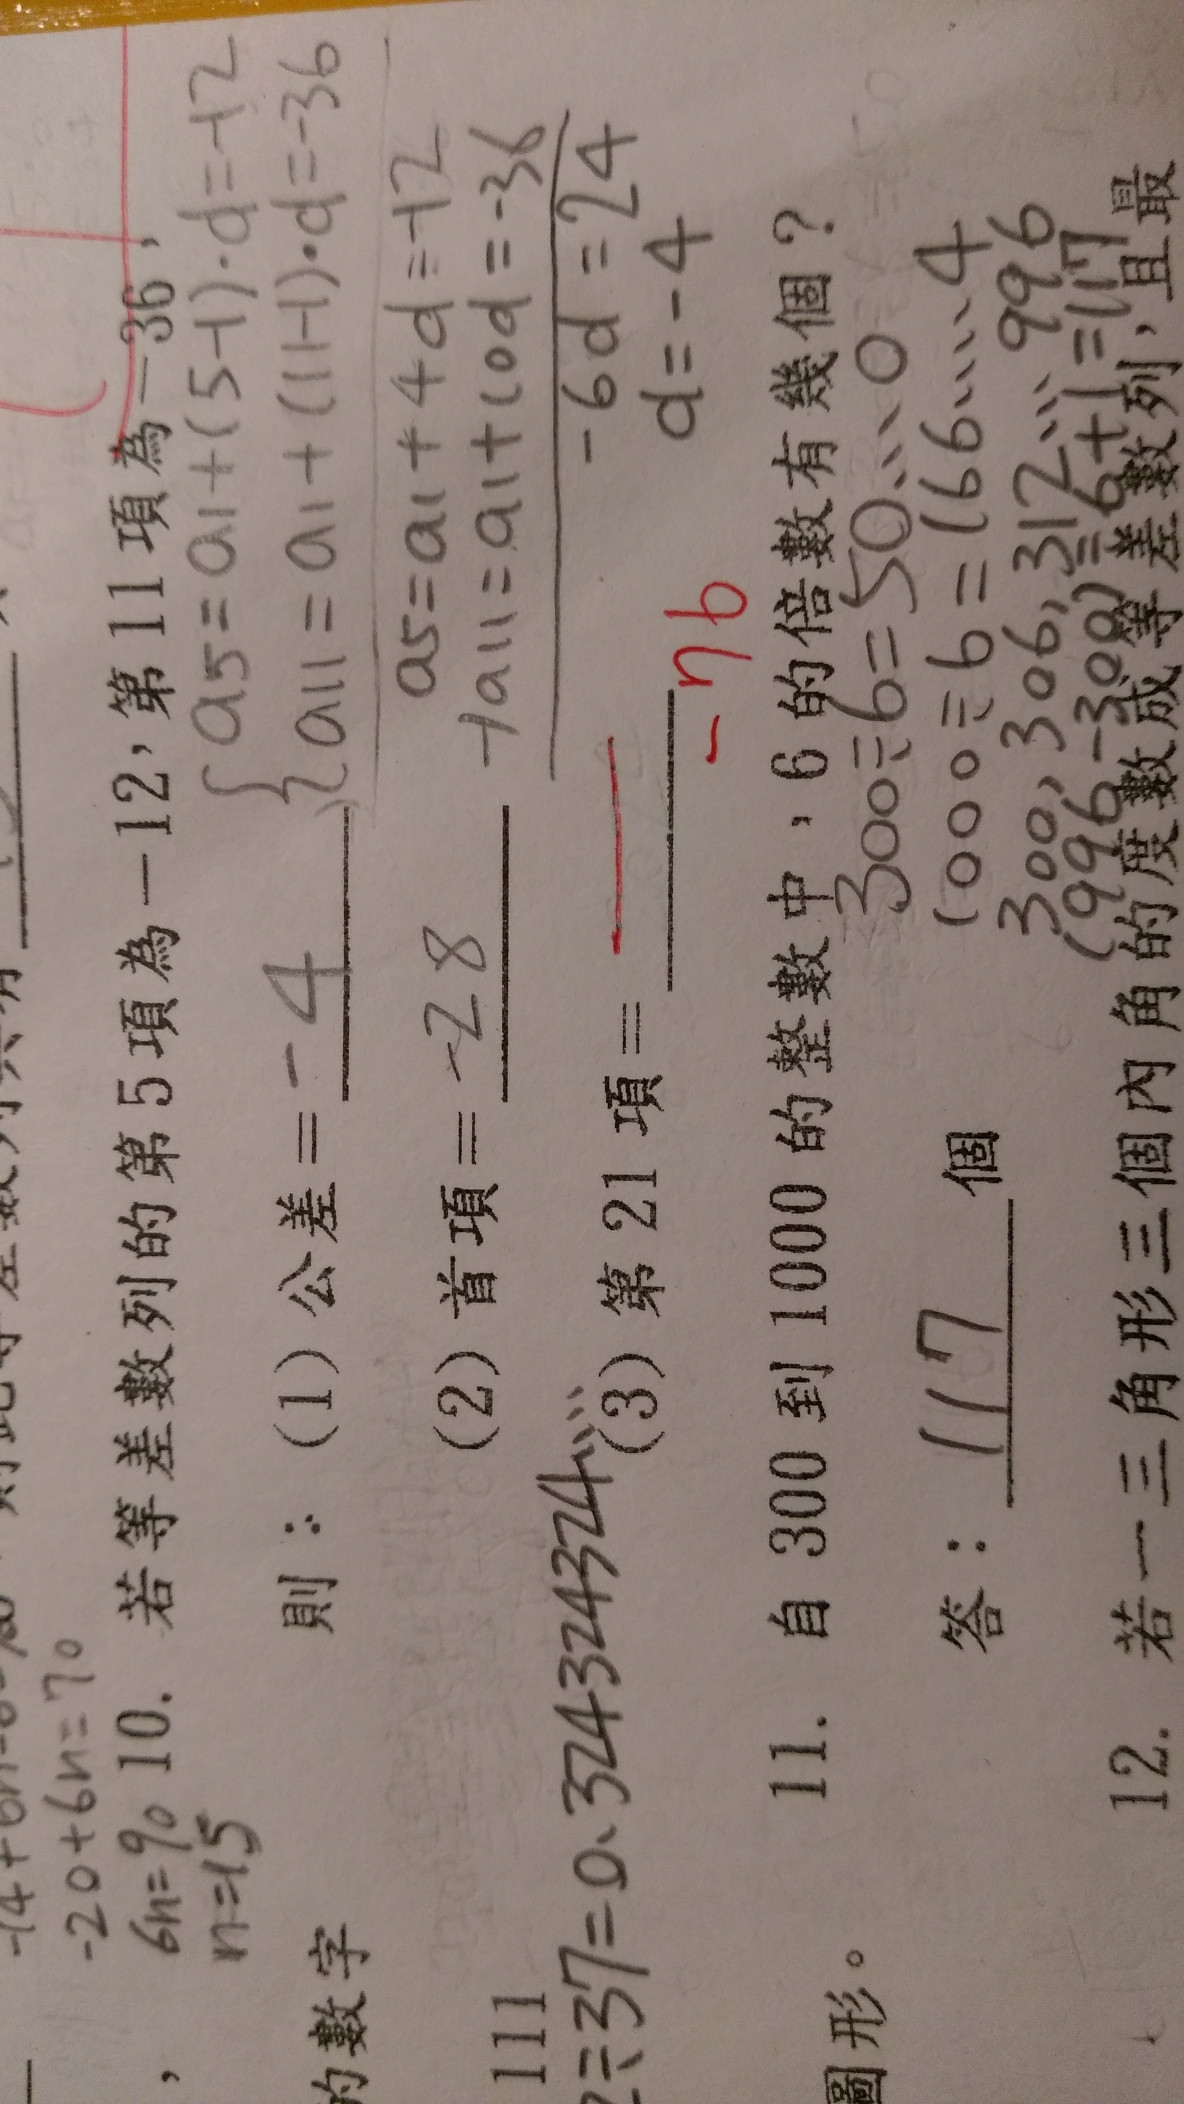 -20+6n=70
6n=90
n=15
10. 若等差數列的第5項為-12,第11項為-36,
則：(1)公差= -4
{a5=a1+(5-1)·d=-12
a11=a1+(11-1)·d=-36
a5=a1+4d=-12
-)a11=a1+10d=-36
-6d=24
d=-4
(2)首項= -28
(3)第21項=
-76
的數字
111
÷37=0.324324324...
11. 自300到1000的整數中，6的倍數有幾個？
300÷6=50...0
1000÷6=166...4
300,306,312...996
(996-300)÷6+1=117
答：117個
圖形。
12. 若一三角形三個內角的度數成等差數列,且最